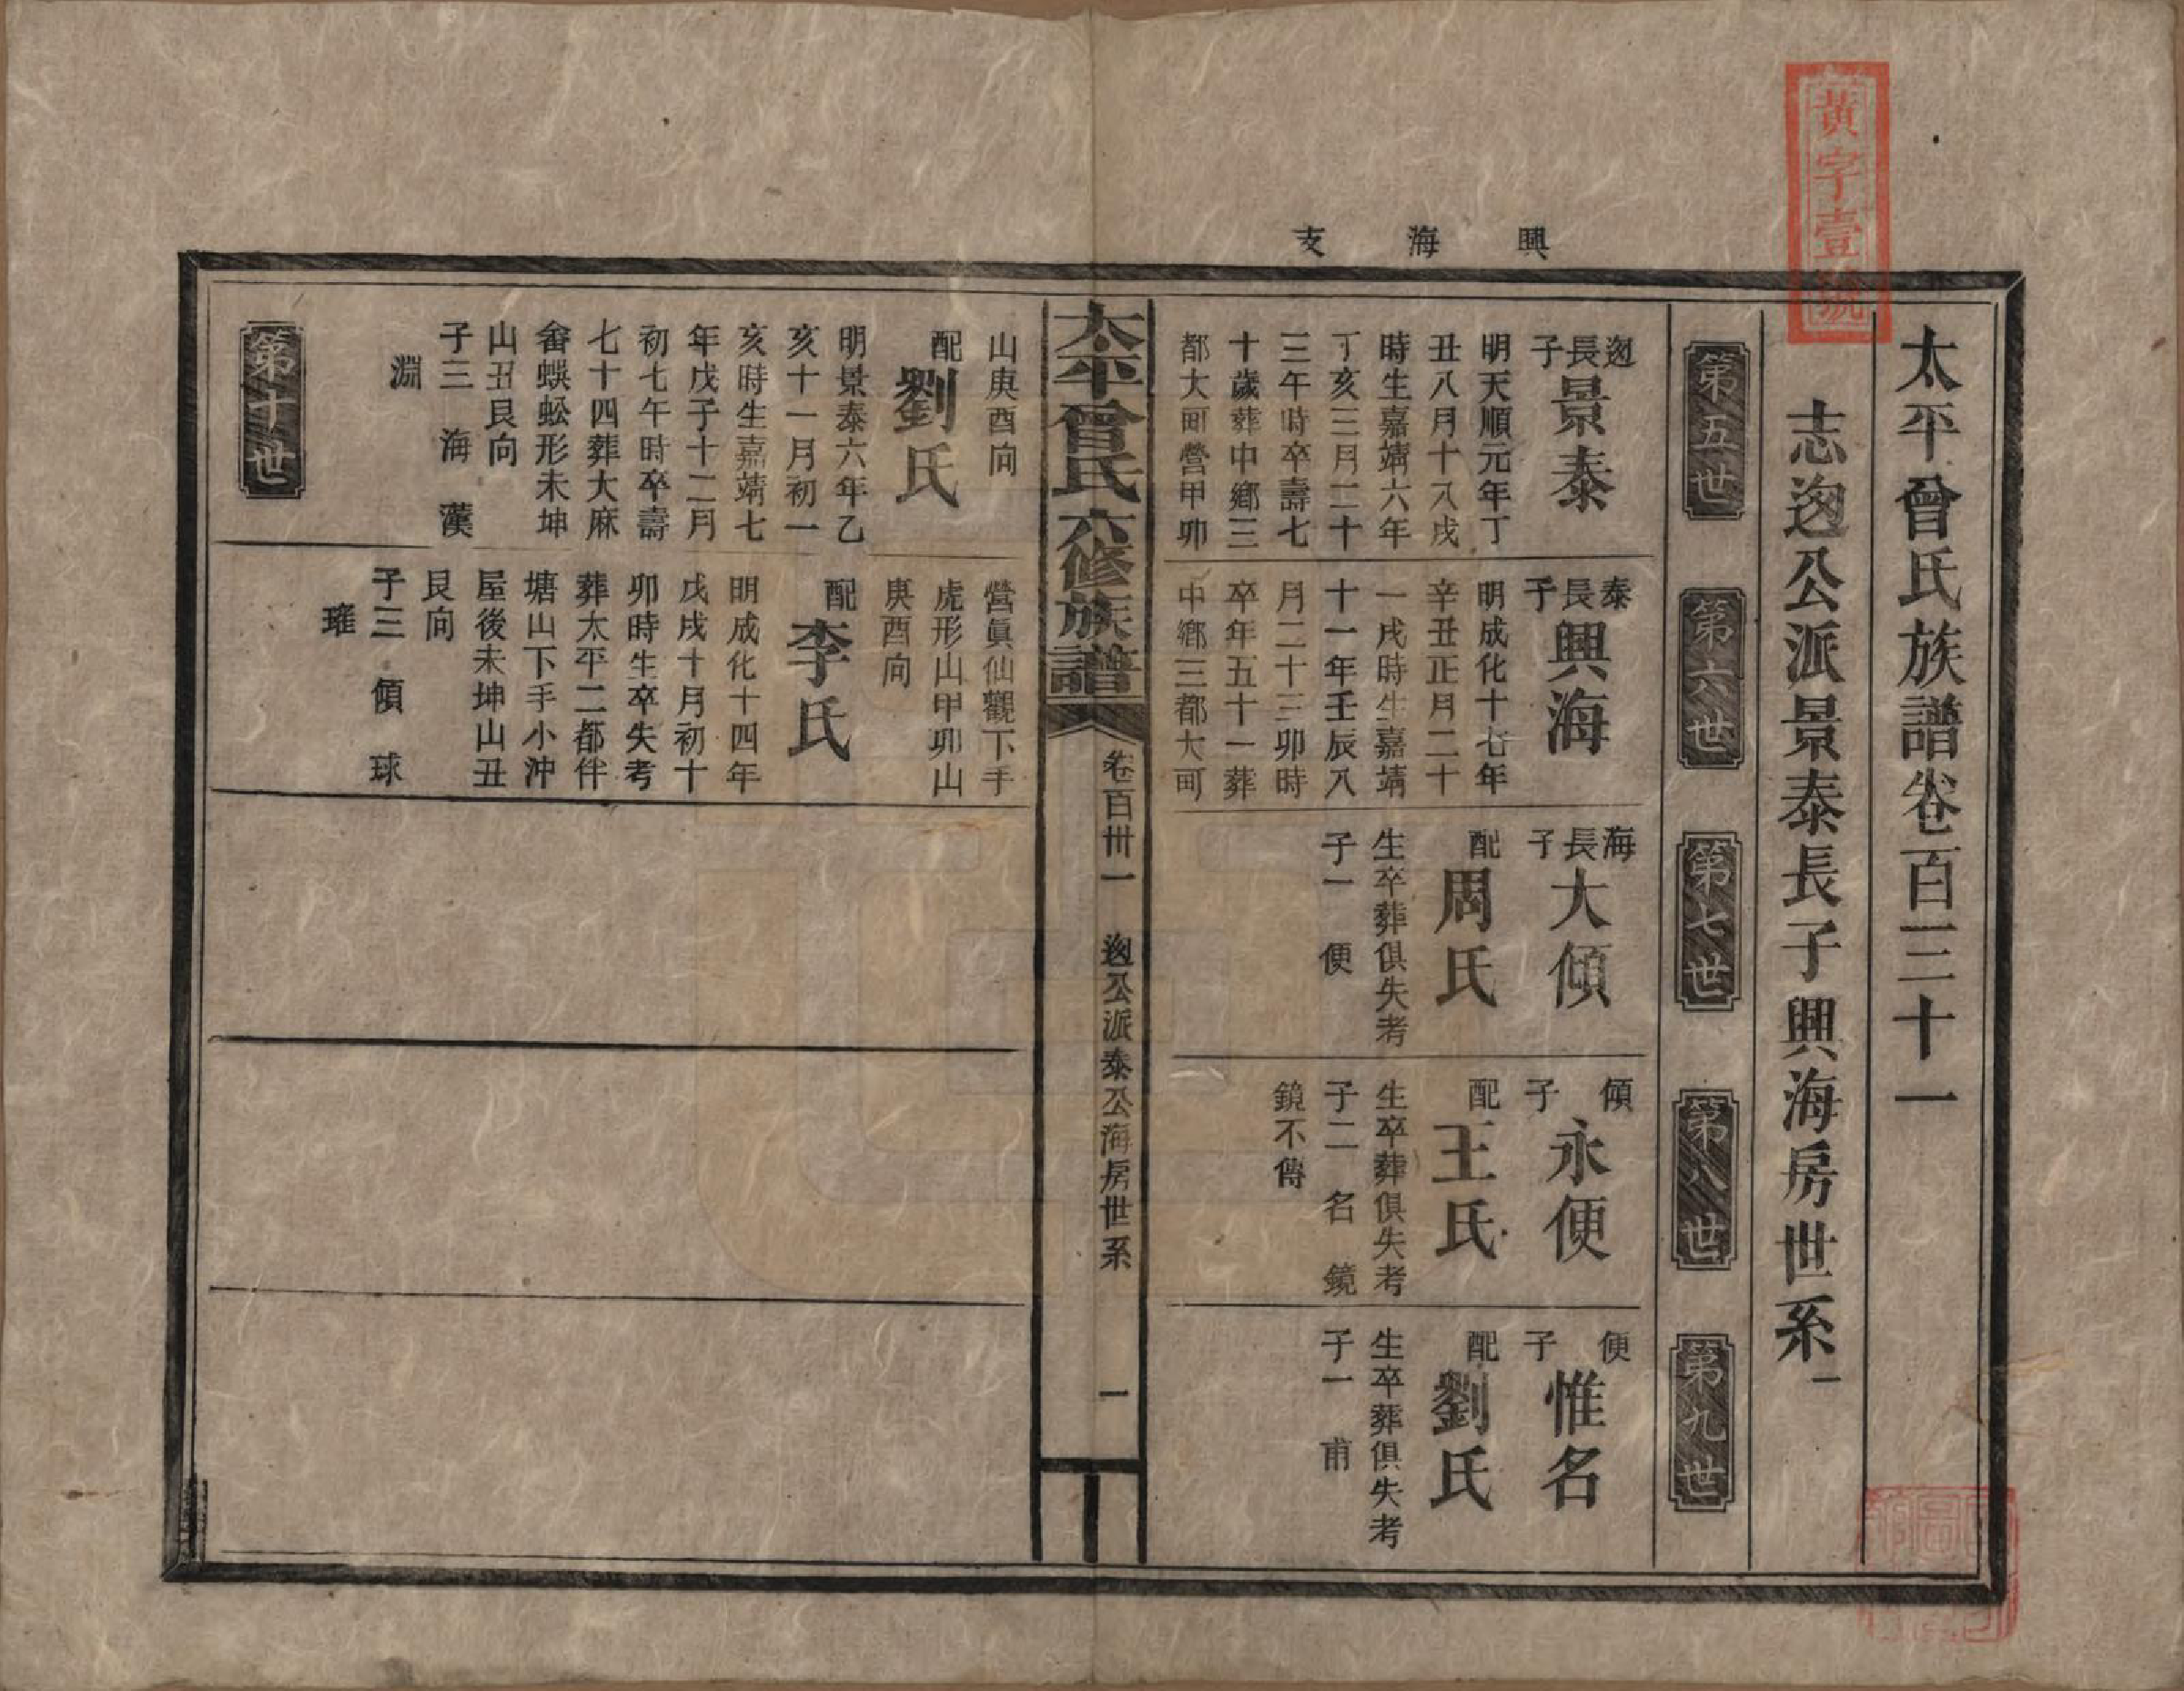 黃字壹號
興海支
太平曾氏族譜卷百三十一
志迯公派景泰長子興海房世系一
第五世
第六世
第七世
第八世
第九世
迯長子景泰
明天順元年丁
丑八月十八戌
時生嘉靖六年
丁亥三月二十
三午時卒壽七
十歲葬中鄉三
都大町營甲卯
泰長子興海
明成化十七年
辛丑正月二十
一戌時生嘉靖
十一年壬辰八
月二十三卯時
卒年五十一葬
中鄉三都大町
海長子大傾
配周氏
生卒葬俱失考
子一 便
傾子永便
配王氏
生卒葬俱失考
子二 名 鏡
鏡不傳
便子惟名
配劉氏
生卒葬俱失考
子一 甫
太平曾氏六修族譜 卷百卅一 迯公派泰公海房世系 一
山庚酉向
配劉氏
明景泰六年乙
亥十一月初一
亥時生嘉靖七
年戊子十二月
初七午時卒壽
七十四葬大麻
畬蜈蚣形未坤
山丑艮向
子三 海 漢
淵
營眞仙觀下手
虎形山甲卯山
庚酉向
配李氏
明成化十四年
戊戌十月初十
卯時生卒失考
葬太平二都伴
塘山下手小沖
屋後未坤山丑
艮向
子三 傾 球
璀
第十世